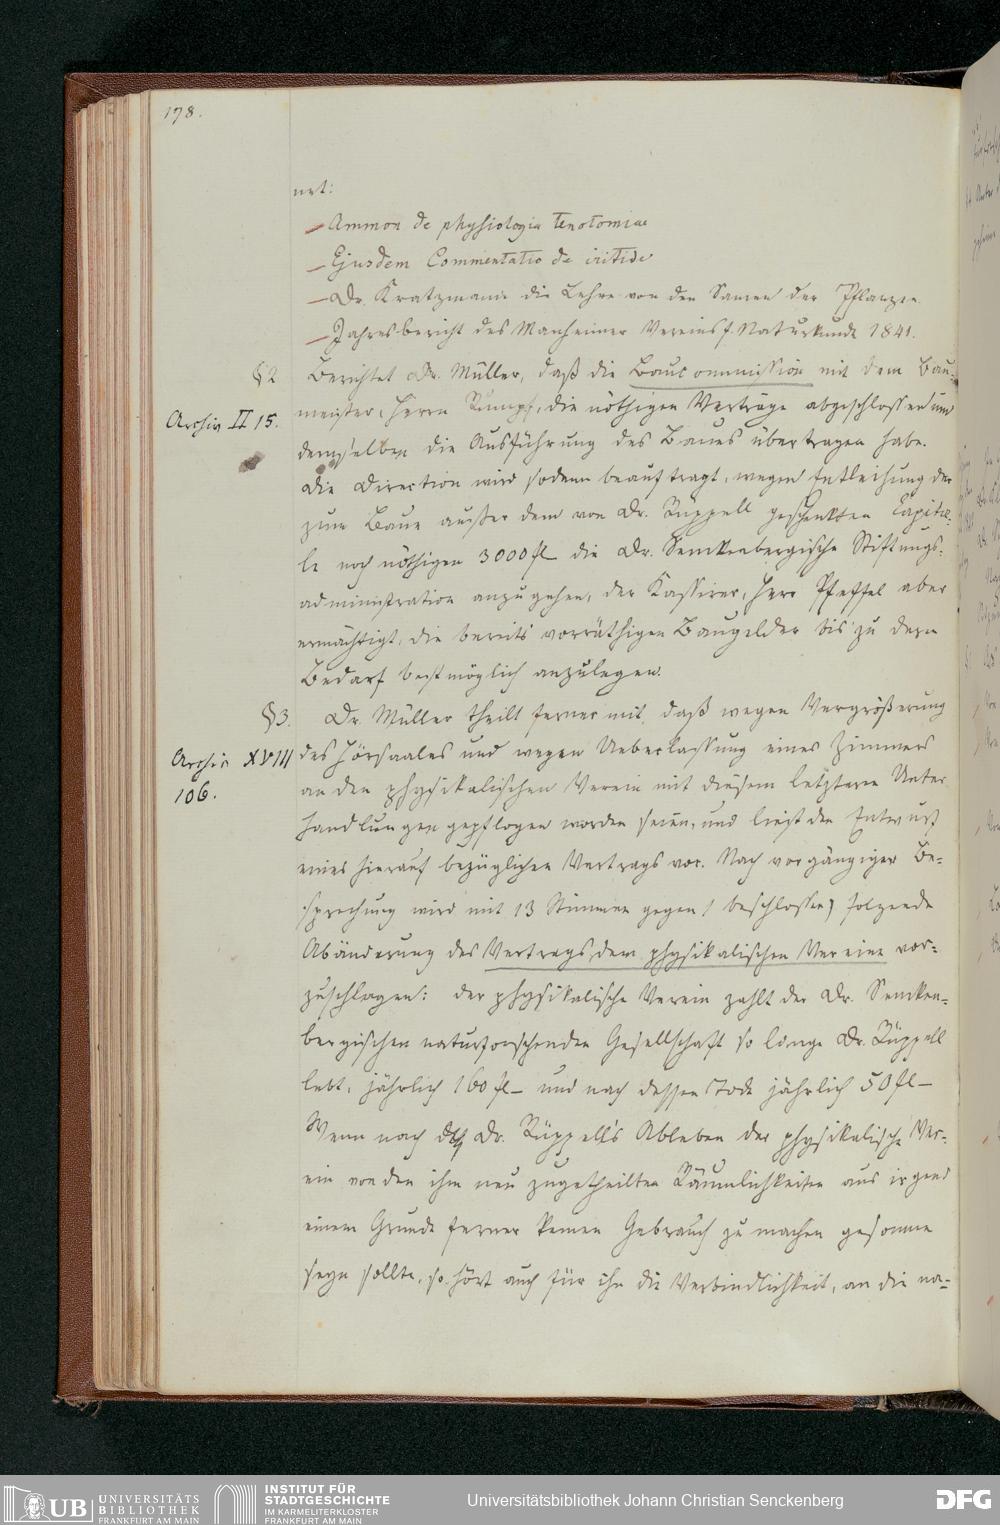 178.
net:
– Ammon de physiologia tenotomiae
– Ejusdem Commentatio de iritide
– Dr. Kratzmann die Lehre von den Samen der Pflanzen.
– Jahresbericht des Manheimer Vereins f. Naturkunde 1841.
§2 Berichtet Dr. Müller, daß die Baucommission mit dem Bau-
meister, Herrn Rumpf, die nöthigen Verträge abgeschlossen und
Archiv II 15.
demselben die Ausführung des Baues übertragen habe.
Die Direction wird sodann beauftragt, wegen Entleihung der
zum Baue außer dem von Dr. Rüppell geschenkten Capita-
le noch nöthigen 3000 fl die Dr. Senckenbergische Stiftungs-
administration anzugehen, der Kassirer, Herr Pfeffel aber
ermächtigt, die bereits vorräthigen Baugelder bis zu deren
Bedarf bestmöglich anzulegen.
§3. Dr. Müller theilt ferner mit, daß wegen Vergrößerung
Archiv XVIII
106.
des Hörsaales und wegen Ueberlassung eines Zimmers
an den physikalischen Verein mit diesem letzteren Unter
handlungen gepflogen worden seien, und liest den Entwurf
eines hierauf bezüglichen Vertrags vor. Nach vorgängiger Be-
sprechung wird mit 13 Stimmen gegen 1 beschlossen, folgende
Abänderung des Vertrags dem physikalischen Vereine vor-
zuschlagen: der physikalische Verein zahlt der Dr. Sencken-
bergischen naturforschenden Gesellschaft so lange Dr. Rüppell
lebt, jährlich 160 fl – und nach dessen Tode jährlich 50 fl –
Wenn nach Dr. Rüppell's Ableben der physikalische Ver-
ein von den ihm neu zugetheilten Räumlichkeiten aus irgend
einem Grunde ferner keinen Gebrauch zu machen gesonnen
seyn sollte, so hört auch für ihn die Verbindlichkeit, an die na-
UB UNIVERSITÄTS
BIBLIOTHEK
FRANKFURT AM MAIN
INSTITUT FÜR
STADTGESCHICHTE
IM KARMELITERKLOSTER
FRANKFURT AM MAIN
Universitätsbibliothek Johann Christian Senckenberg
DFG